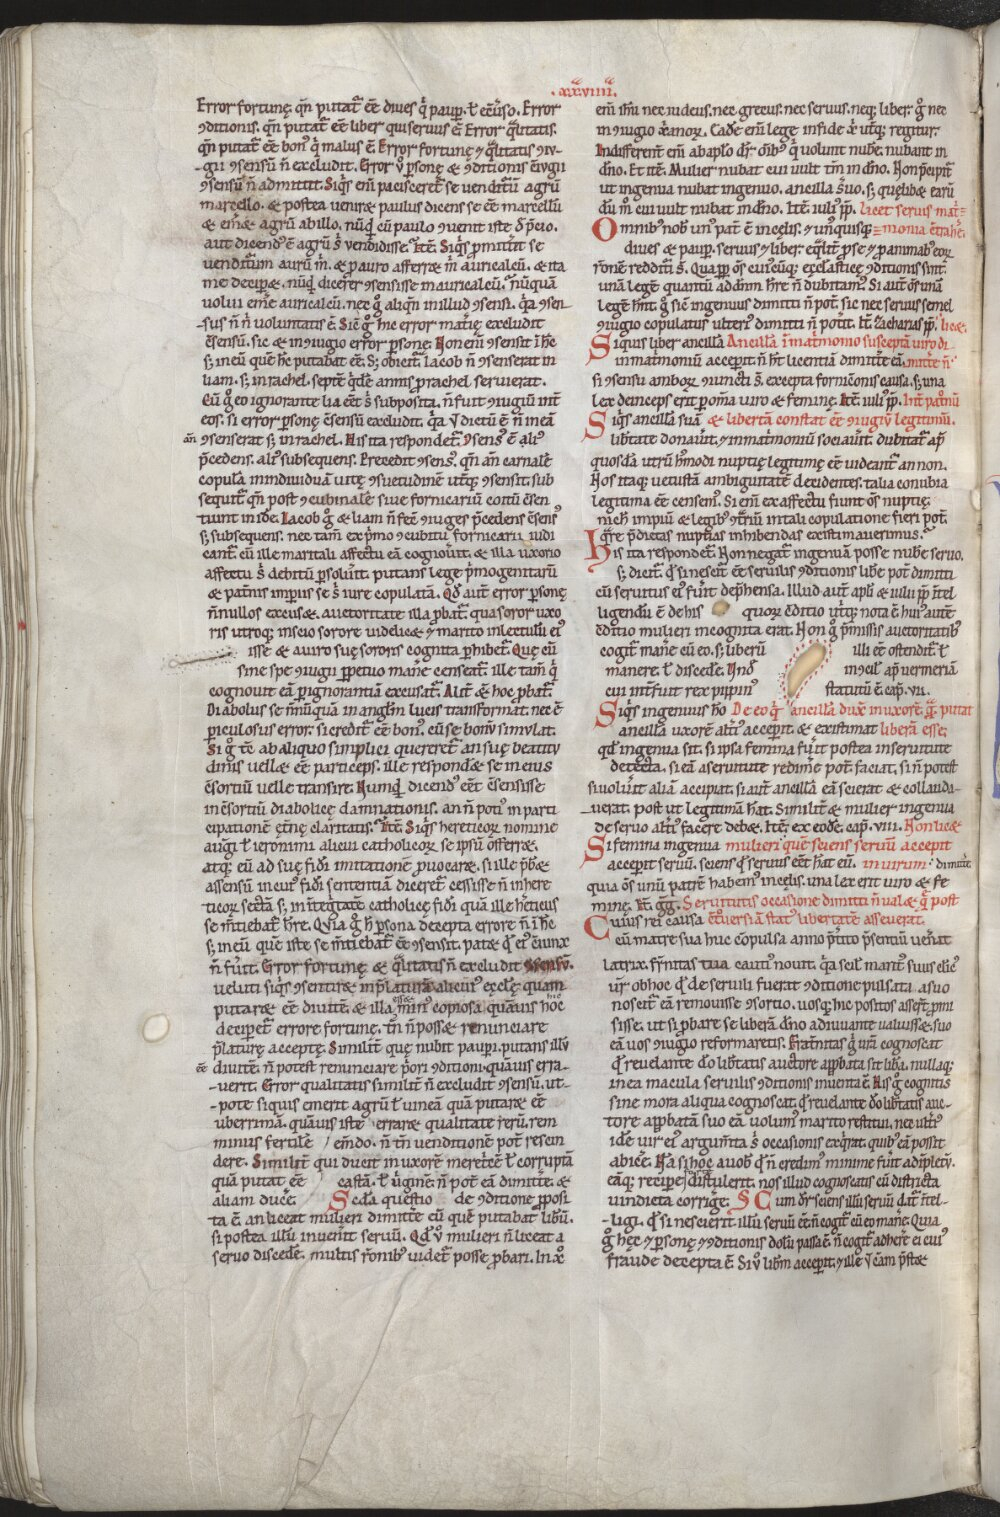 .xxxviiii.
Error fortunę. qn̄ putat̄ eē diues q̇ paup. ł ecůso. Error
ꝯditionis. qn̄ putat̄ eē liber qui seruus ē. Error q̄litatis.
qn̄ putat̄ eē bon᷒ q̇ malus ē. Error fortunę ⁊ q̄litatis ꝯiu-
-gii ꝯsensū ñ excludit. Error ů ꝑsonę & ꝯditionis ꝯiugii
ꝯsensū ñ admittit. Siq̇s eni pacisceret̄ se venditū agrū
marcello. & postea veniret paulus dicens se eē marcellū
& emēt agrū ab illo. nūqd cū paulo ꝯuenit iste d̄ p̄cio.
aut dicend᷒ ē agrū s̄ vendidisse. Itē. Siq̇s ꝓmitteet se
venditurum aurū m̄. & ꝓ auro afferret m̄ auricalcū. & ita
me deciperet. nūqd diceret̄ ꝯsensisse in auricalcū. nūquā
volui em̄e auricalcū. nec g̊ aliqn̄ in illud ꝯsensi. q̇a ꝯsen-
-sus ñ n̄ voluntatis ē. Sic g̊ hic error materię excludit
ꝯsensū. sic & in ꝯiugio error ꝑsonę. Non eni ꝯsensit ī hc̄
s; in eū quē hc̄ putabat eē. S; obicit̄. Iacob ñ ꝯsenserat in
liam. s; in rachel. septē q̇dē annis ꝓ rachel seruierat.
Cū g̊ eo ignorante lia eēt s̄ supposita. ñ fuit ꝯiugiū int̄
eos. si error ꝑsonę ꝯsensū excludit. q̇a ů dictū ē ñ in eā
ꝯsenserat s; in rachel. His ita respondet̄. ꝯsens᷒ ē ali᷒
p̄cedens. ali᷒ subsequens. Precedit ꝯsens᷒. qn̄ an̄ carnalē
copulā in indiuiduā uitę ꝯsuetudinē utq; ꝯsensit. sub
sequit̄ qn̄ post ꝯcubinale siue fornicariū coitū ꝯsen
tiunt in idē. Iacob g̊ & liam ñ fec̄ ꝯiuges p̄cedens ꝯsens᷒
s; subsequens. nec tam̄ ex ṗmo ꝯcubitu fornicarii iudi
cant̄. cū ille maritali affectu eā cognouit. & illa uxorio
affectu s̄ debitū ꝑsoluit. putans lege ṗmogenitarū
& pat̄nis impiis se s̄ iure copulatā. Qd̄ aut̄ error ꝑsonę
ñnullos excuset. auctoritate illa ꝓbat̄. qua soror uxo
ris utroq; inscio sorore uidelicet ⁊ marito in lectulū ei᷒
isse & a uiro suę sororis cognita ꝑhibet̄. Quę cū
sine spe ꝯiugii ꝑpetuo manē censeat̄. ille tam̄ q̇
cognouit eā ꝑ ignorantiā excusat̄. Alit̄ & hoc ꝓbat̄.
Diabolus se ñnūquā in anglm̄ lucis transformat. nec ē
ꝑiculosus error. si credit̄ eē bon᷒. cū se bonū simulat.
Si g̊ tc̄ ab aliquo simplici quereret̄ an suę beatitu
dinis vellet eē particeps. ille responderet se in eius
ꝯsortiū uelle transire. Numq̇d dicend᷒ eēt ꝯsensisse
in ꝯsortiū diabolicę damnationis. an ñ poti᷒ in parti
cipationē ęt̄nę claritatis. Itē. Siq̇s hereticor̄ nomine
augī ł ieronimi alicui catholicor̄ se ipsū offerret.
atq; eū ad suę fidi imitationē ꝓuocaret. si ille p̄bet
assensū in cui᷒ fidi sententiā diceret̄ cessisse ñ in here
ticor̄ sectā s; in īteḡtatē catholicę fidi quā ille hēticus
se m̄tiebat̄ hr̄e. Quia g̊ h̄ ꝑsona decepta errore ñ ī hc̄
s; in eū quē iste se m̄tiebat̄ eē ꝯsensit. patet q̄ ei᷒ ꝯiunx
ñ fuit. Error fortunę & q̄litatis ñ excludit ꝯsensū.
veluti siq̇s ꝯsentiret in p̄laturā alicui᷒ ecclę. quam
putaret eē diuitē. & illa eēt min᷒ copiosa. quāuis hic
decipet̄ errore fortunę. tn̄ ñ posset renunciare
p̄laturę acceptę. Similit̄ que nubit pauꝑi. putans illū
diuitē. ñ potest renunciare ṗori ꝯditioni. quāuis erra-
-uerit. Error qualitatis similit̄ ñ excludit ꝯsensū. ut-
-pote si quis emerit agrū ł uineā quā putaret eē
uberrimā. quāuis iste erraret qualitate rerū. rem
minus fertilē emdo. ñ tn̄ venditionē pot̄ rescin
dere. Similit̄ qui ducit in uxorē merecē ł corruptā
quā putat eē castā. ł ūginē. ñ pot̄ eā dimitte. &
aliam ducē. Scd̄a questio de ꝯditione ꝓposi
ta ē. an liceat mulieri dimitte eū quē putabat libū.
si postea illū inuenit seruū. Qd̄ ů mulieri ñ liceat a
seruo discede. multis rōnib᷒ uidet̄ posse ꝓbari. In xp̄o
eni ihu nec iudeus. nec grecus. nec seruus. neq; liber. g̊ nec
in ꝯiugio xp̄ianor̄. Eadē eni lege in fide xp̄i utq; regitur.
Indifferent̄ eni ab aplo dr̄ oīb᷒ q̇ volunt nube. nubant in
dn̄o. Et itē. Mulier nubat cui uult tm̄ in dn̄o. Non p̄cipit̄
ut ingenua nubat ingenuo. ancilla s̄uo. s; quęlibet earū
dū m̊ cui uult nubat in dn̄o. Itē. iuli᷒ p̄p. licet seruis mat̄-
Omnib᷒ nob̄ un᷒ pat̄ ē in cęlis. ⁊ un᷒quisq; =monia ꝯt̄hē.
diues & pauꝑ. seruus ⁊ liber. eq̄lit̄ ꝓ se ⁊ ꝓ animab᷒ eor̄
rōnē reddit̄i s̄. Quapp̄ os̄ cui᷒cūq; ex clasticę ꝯditionis sint.
unā legē quantū ad dn̄m hr̄e ñ dubitam᷒. Si aut̄ oś unā
legē hn̄t. g̊ sic ingenuus dimitti ñ pot̄. sic nec seruus semel
ꝯiugio copulatus ulteri᷒ dimitti ñ pot̄it. It̄. Zacharias p̄p. licet.
Si quis liber ancillā Ancillā ī mat̄monio susceptā uiro di-
in mat̄moniū acceꝑit. ñ ht̄ licentiā dimitte eā. mitte ñ
si ꝯsensu ambor̄ ꝯiuncti s̄. excepta fornicōnis causa. s; una
lex deinceps erit ꝑ om̄ia uiro & feminę. Itē iuli᷒ p̄p. Int̄ pat̊nū
Siq̇s ancillā suā & libertā constat eē ꝯiugiū legitimū.
libtate donauit. ⁊ in mat̄moniū sociauit. dubitat̄ ap̄
quosdā utrū hmōdi nuptię legitimę eē videant̄ an non.
Nos itaq; vetustā ambiguitatē decidentes. talia conubia
legitima eē censem᷒. Si eni ex affectu fiunt os̄ nuptię.
nichil impiū & legib᷒ ꝯt̄riū in tali copulatione fieri pot̄.
q̇re p̄dictas nuptias inhibendas existimauerimus.
His ita respondet̄. Non negat̄ ingenuā posse nube seruo.
s; dicit̄ q̄ si nescit̄ eē seruilis ꝯditionis libē pot̄ dimitti
cū seruitus ei᷒ fuit dep̄hensa. Illud aut̄ apł & iulii pp̄ ītel
ligendū ē de his quor̄ ꝯditio utq; nota ē. hui᷒ aut̄
ꝯditio mulieri incognita erat. Non g̊ p̄missis auctoritatib᷒
cogit̄ manē cū eo. s; liberū illi eē ostendit̄ ł
manere. ł discede. Und̄ in ꝯcil ap̄ vermeriā
cui int̄fuit rex pipin᷒ statutū ē. cap̄. vii.
Siq̇s ingenuus hō De eo q̇ ancillā duxit in uxorē. quā putat
ancillā uxorē alt̄i᷒ acceꝑit. & existimat liberā esse.
qd̄ ingenua sit. si ipsa femina fuit postea in seruitute
detecta. si eā a seruitute redime pot̄. faciat. si ñ potest
si uoluit aliā accipiat. si aut̄ ancillā eā scierat & collauda-
-uerat. post ut legitimā hat̄. Similit̄ & mulier ingenua
de seruo alt̄i᷒ facere debet. Itē ex eodē. cap̄. viii. Non licet
Si femina ingenua mulieri quę sciens seruū accepit
acceꝑit seruū. sciens q̄ seruus eēt hat̄ eū. in uirum. dimitte
quia os̄ unū patrē habem᷒ in cęlis. una lex erit uiro & fe
minę. It̄. Gg̊. Seruitutis occasione dimitti ñ ualet. q̄ post
Cuius rei causa ꝯt̄uersiā stat᷒ libertatē asseuerat.
cū matre sua huc cōpulsa anno p̄t̄ito p̄sentiū venit
latrix. fr̄nitas tua cauti᷒ nouit. q̇a scił marit᷒ suus eic᷒
vir ob hoc q̄ de seruili fuerat ꝯditione pulsata a suo
noscit̄ eā remouisse ꝯsortio. uosq; hic positos asserit ꝓmi
sisse. ut si ꝓbaret se liberā. dn̄o adiuuante ualuisset. suo
eā uos ꝯiugio reformaretis. Frat̄nitas g̊ ur̄a cognoscat
q̄ reuelante dō libtatis auctore appbata sit liba. nullaq;
in ea macula seruilis ꝯditionis inuenta ē. His g̊ cognitis
sine mora aliqua cognoscat. q̄ reuelante dō libtatis auc-
tore appbatā suo eā volum᷒ marito restitui. nec ulteri᷒
idē uir ei᷒ argum̄ta s̄ occasionis exq̇rat. quib᷒ eā possit
abicē. Nā si hoc a uob̄ q̄ ñ credim᷒ minime fuit adipletū.
eāq; recipe distulerit. nos illud cognoscatis cū districta
vindicta corriġe. § Cum dr̄ sciens illū seruū. dat̄ ītel-
-ligi. q̄ si nescierit illū seruū eē. ñ cogit̄ cū eo manē. Quia
g̊ hęc ⁊ ꝑsonę ⁊ ꝯditionis dolū passa ē. ñ cogit̄ adherē ei cui᷒
fraude decepta ē. Si ů libm̄ acceꝑit. ⁊ ille ů cām p̄stet